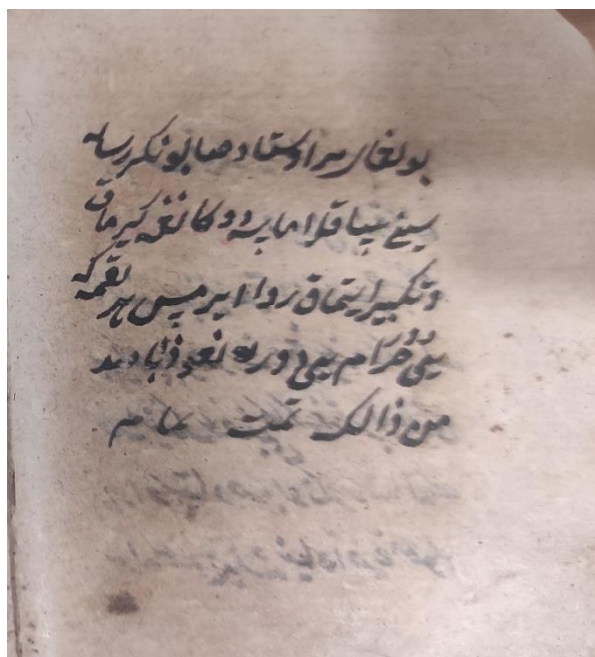 بولغای هر اوستاد صابونکر رساله
سینی ساقلاماسه دوکانغه کیرماق
و تکبیر ایتماق روا ایرمیس هر لقمه که
حرام دور نعوذ بالله
من ذالک تمت تمام